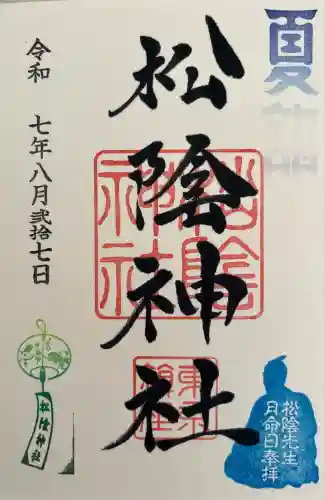 夏詣
松陰神社
令和 七年八月弐拾七日
松陰神社
松陰先生
月命日奉拝
松陰
神社